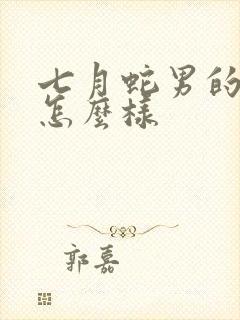 七月蛇男的
怎麼樣
郭嘉